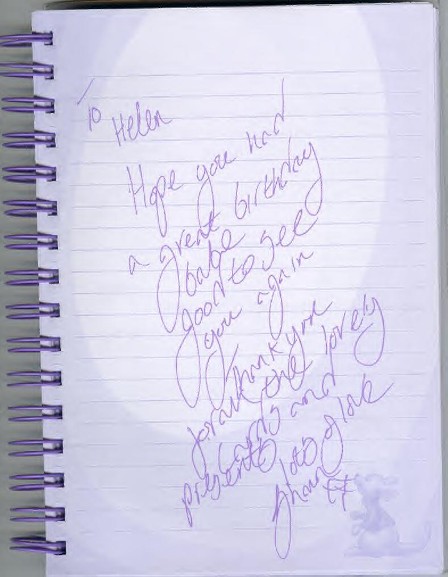 To
Helen
Hope you had
a great birthday
babe
good to see
you again
Thank you
for all the lovely
cards and
presents lots of love